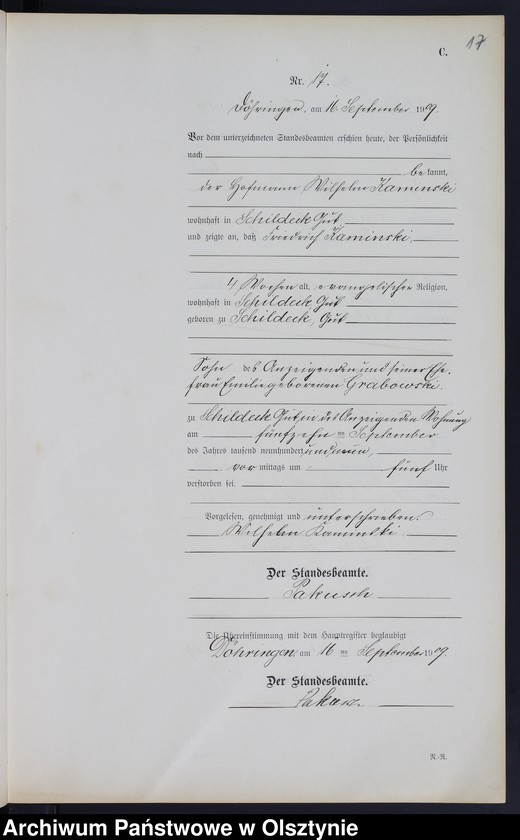 C.
17
Nr. 17.
Döhringen, am 16. September 1909.
Vor dem unterzeichneten Standesbeamten erschien heute, der Persönlichkeit
nach
be kannt,
der Hofmann Wilhelm Kaminski
wohnhaft in Schildeck Gut,
und zeigte an, daß Friedrich Kaminski,
4 Wochen alt, evangelischer Religion,
wohnhaft in Schildeck, Gut
geboren zu Schildeck, Gut
Sohn des Anzeigenden und seiner Ehe-
frau Emilie geborenen Grabowski.
zu Schildeck Gut in des Anzeigenden Wohnung
am fünfzehn ten September
des Jahres tausend neunhundert und neun,
vor mittags um fünf Uhr
verstorben sei.
Vorgelesen, genehmigt und unterschrieben.
Wilhelm Kaminski
Der Standesbeamte.
Pakusch
Die Übereinstimmung mit dem Hauptregister beglaubigt
Döhringen, am 16 ten September 1909.
Der Standesbeamte.
R.-R.
Archiwum Państwowe w Olsztynie